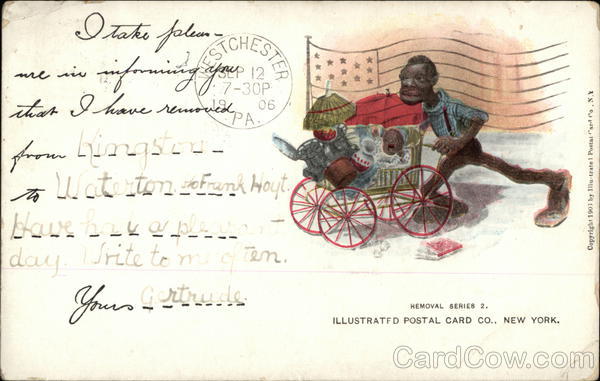 I take pleas-
ure in informing you
that I have removed
from Kingston
to Waterton to Frank Hoyt.
Have had a pleasant
day. Write to me often.
Yours Gertrude
WESTCHESTER
SEP 12
7-30P
19 06
PA.
Copyright 1903 by Illustrated Postal Card Co., N.Y.
REMOVAL SERIES 2.
ILLUSTRATED POSTAL CARD CO., NEW YORK.
CardCow.com